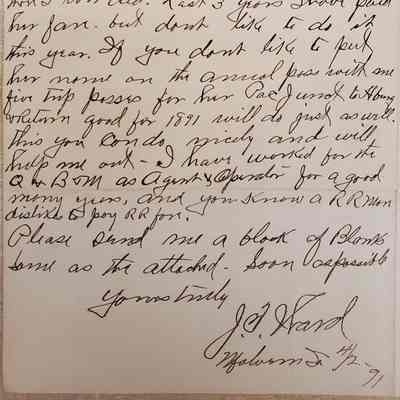 Last 3 years I have paid
her fare. but dont like to do it
this year. If you dont like to put
her name on the annual pass with me
five trip passes for her Pac Junct to
& return good for 1891 will do just as well.
this you can do, nicely and will
help me out - I have worked for the
Q & B&M as Agent & Operator for a good
many years, and you know a RR man
dislikes to pay RR fare.
Please send me a block of Blanks
same as the attached. Soon as possible
Yours truly
J. F. Ward
Malvern Ia 4/2 - 91